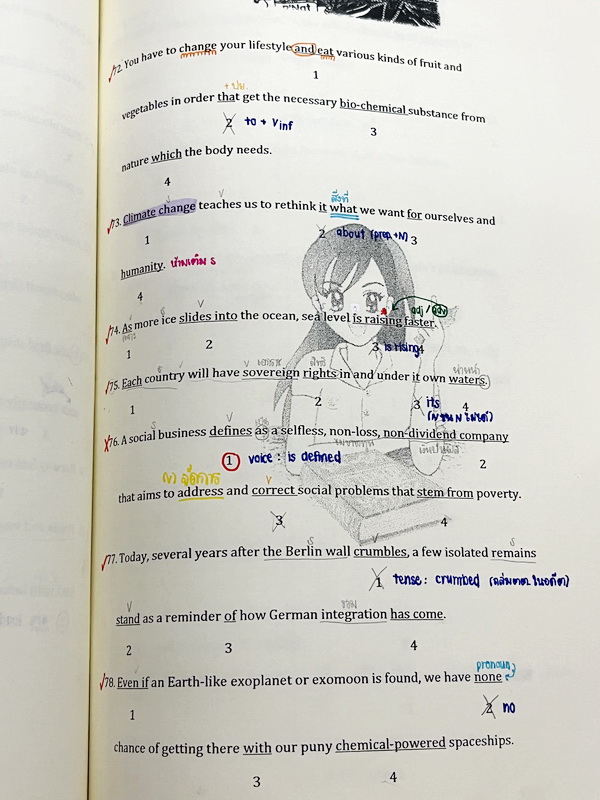 "Not
72. You have to change your lifestyle and eat various kinds of fruit and
1
+ ปย.
vegetables in order that get the necessary bio-chemical substance from
2 to + Vinf
3
nature which the body needs.
4
V สิ่งที่
73. Climate change teaches us to rethink it what we want for ourselves and
1 2 about (prep +N) 3
humanity. ห้ามเติม s
4
S V adj / adv
74. As more ice slides into the ocean, sea level is raising faster.
1 2 3 is rising 4
S V สิทธิ น่านน้ำ
75. Each country will have sovereign rights in and under it own waters.
1 2 3 its 4
V
76. A social business defines as a selfless, non-loss, non-dividend company
1 voice : is defined 2
(v) V
that aims to address and correct social problems that stem from poverty.
3 4
S V S
77. Today, several years after the Berlin wall crumbles, a few isolated remains
1 tense : crumbed
V รวม
stand as a reminder of how German integration has come.
2 3 4
pronoun
78. Even if an Earth-like exoplanet or exomoon is found, we have none
1 2 no
chance of getting there with our puny chemical-powered spaceships.
3 4